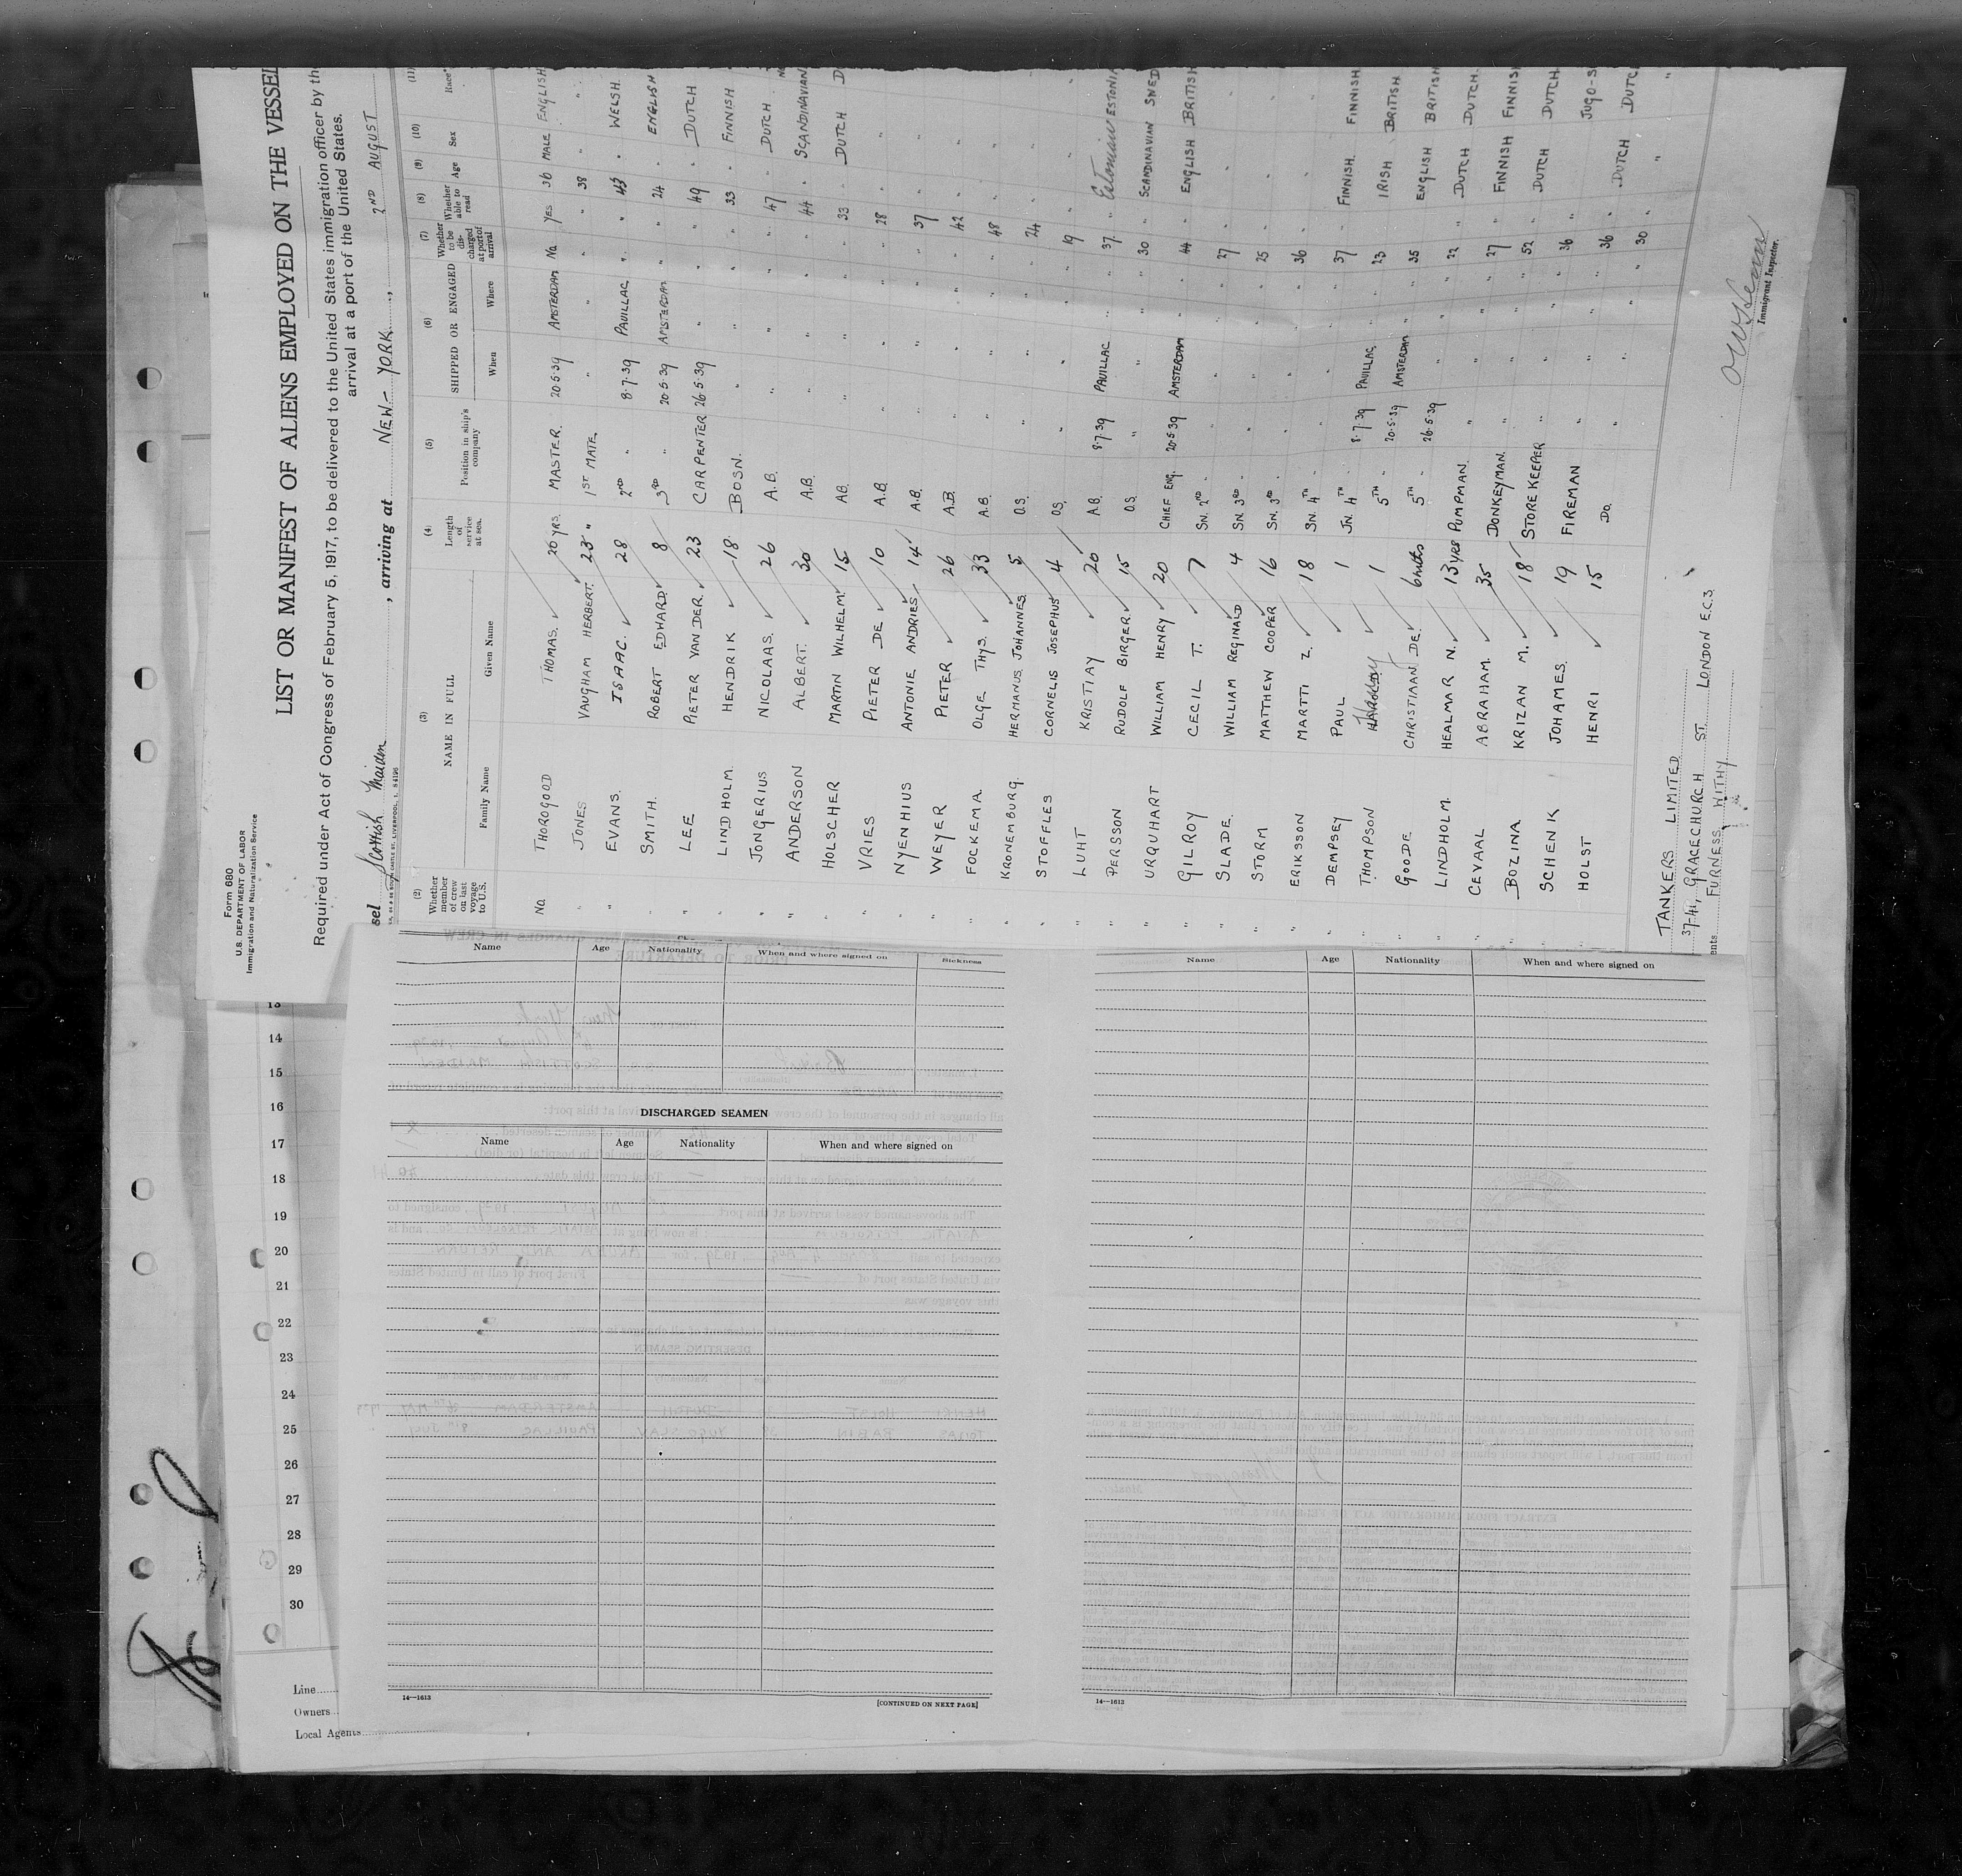 Form 680
U.S. DEPARTMENT OF LABOR
Immigration and Naturalization Service
LIST OR MANIFEST OF ALIENS EMPLOYED ON THE VESSEL
Required under Act of Congress of February 5, 1917, to be delivered to the United States immigration officer by the
arrival at a port of the United States.
sel Scottish Maiden, arriving at NEW-YORK, 2ND AUGUST
(2) (3) (4) (5) (6) (7) (8) (9) (10) (11)
Whether member of crew on last voyage to U.S. NAME IN FULL Family Name Given Name Length of service at sea. Position in ship's company SHIPPED OR ENGAGED When Where Whether to be discharged at port of arrival Whether able to read Age Sex Race*
No. THOROGOOD THOMAS. 20 YRS. MASTER. 20.5.39 AMSTERDAM No YES 36 MALE ENGLISH
" JONES VAUGHAM HERBERT. 23 " 1ST MATE. " " " " 38 " "
" EVANS. ISAAC. 28 2ND " 8.7.39 PAUILLAC " " 43 " WELSH.
" SMITH. ROBERT EDWARD. 8 3RD " 20.5.39 AMSTERDAM " " 24 " ENGLISH
" LEE PIETER VAN DER. 23 CARPENTER 26.5.39 " " " 49 " DUTCH
" LINDHOLM. HENDRIK 18 BOSN. " " " " 33 " FINNISH
" JONGERIUS NICOLAAS. 26 A.B. " " " " 47 " DUTCH
" ANDERSON ALBERT. 30 A.B. " " " " 44 " SCANDINAVIAN
" HOLSCHER MARTIN WILHELM. 15 AB. " " " " 33 " DUTCH
" VRIES PIETER DE 10 A.B. " " " " 28 " "
" NYENHIUS ANTONIE ANDRIES 14 A.B. " " " " 37 " "
" WEYER PIETER 26 A.B. " " " " 42 " "
" FOCKEMA. OLGE THYS. 33 A.B. " " " " 48 " "
" KRONEMBURG. HERMANUS JOHANNES. 5 O.S. " " " " 24 " "
" STOFFLES CORNELIS JOSEPHUS 4 OS. " " " " 19 " "
" LUHT KRISTIAY 20 A.B. 8.7.39 PAUILLAC " " 37. " Estonian ESTONIA
" PERSSON RUDOLF BIRGER. 15 O.S. " " " " 30 " SCANDINAVIAN SWED
" URQUHART WILLIAM HENRY 20 CHIEF ENG. 20.5.39 AMSTERDAM " " 44 " ENGLISH BRITISH
" GILROY CECIL T. 7 SN. 2ND " " " " " 27 " " "
" SLADE. WILLIAM REGINALD 4 SN. 3RD " " " " " 25 " " "
" STORM MATTHEW COOPER 16 SN. 3RD " " " " " 36 " " "
" ERIKSSON MARTTI Z. 18 SN. 4TH " 8.7.39 PAUILLAC " " 37 " FINNISH. FINNISH
" DEMPSEY PAUL 1 JN. 4TH " 20.5.39 AMSTERDAM " " 23 " IRISH BRITISH
" THOMPSON 1 5TH " 26.5.39 " " " 35 " ENGLISH BRITISH
" GOODE CHRISTIAAN DE. 6 mths 5TH " " " " " 22 " DUTCH DUTCH.
" LINDHOLM. HEALMAR N. 13 YRS PUMPMAN. " " " " 27 " FINNISH FINNISH
" CEVAAL ABRAHAM. 35 DONKEYMAN. " " " " 52 " DUTCH DUTCH
" BOZINA KRIZAN M. 18 STOREKEEPER " " " " 36 " JUGO-S
" SCHENK JOHAMES. 19 FIREMAN " " " " 36 " DUTCH DUTCH
" HOLST HENRI 15 DO. " " " " 30 " " "
TANKERS LIMITED
37-41, GRACECHURCH ST. LONDON E.C.3.
ents FURNESS WITHY
Immigrant Inspector.
Name Age Nationality When and where signed on Sickness
DISCHARGED SEAMEN
Name Age Nationality When and where signed on
14—1613 [CONTINUED ON NEXT PAGE]
Name Age Nationality When and where signed on
14—1613
13
14
15
16
17
18
19
20
21
22
23
24
25
26
27
28
29
30
Line
Owners
Local Agents